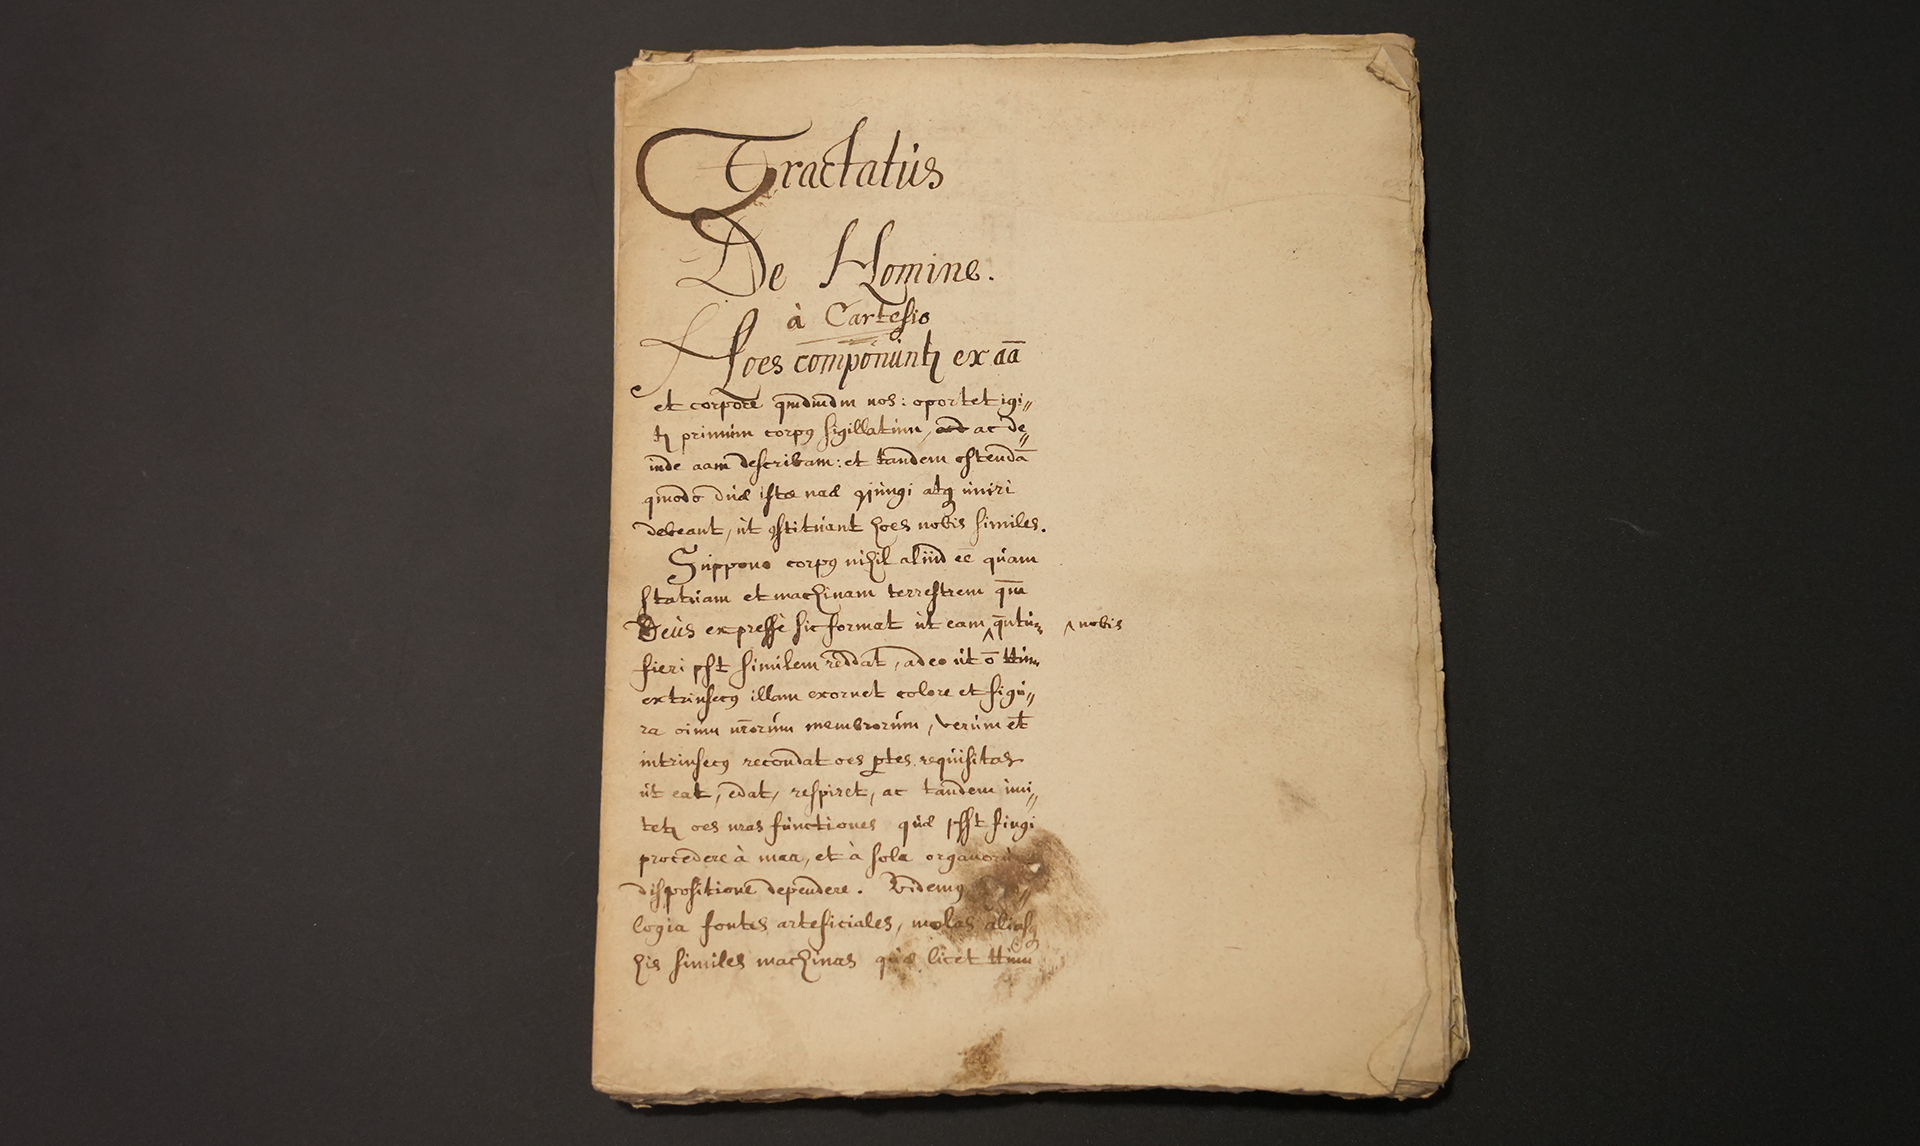 Tractatús
De Homine.
à Cartesio
Hoes componúntɀ ex aā
et corpore qmdmdm nos: oportet igi〃
tɀ primúm corpꝰ sigillatim, ac de〃
inde aam describam: et tandem ostendā
qmodo dúæ istæ naæ ꝯjúngi atqꝫ úniri
debeant, út ꝯstitúant hoes nobis similes.
Súppono corpꝰ nihil aliúd eē qúam
statúam et machinam terrestrem qm̄
Deús expressè sic format út eam ‸ qn̄túm ‸ nobis
fieri pſt similem reddat, adeo út ō ttúm
extrinsecꝰ illam exornet colore et figú〃
ra oiúm nr̄orúm membrorúm, verúm et̄
intrinsecꝰ recondat oes ꝑtes reqúisitas
út eat, edat, respiret, ac tandem imi〃
tetɀ oes nras fúnctiones qúæ pſſt fingi
procedere à maa, et à sola organorúm
dispositione dependere. Videmꝰ
logia fontes arteficiales, molas aliasqꝫ
his similes machinas qúæ licet ttúm